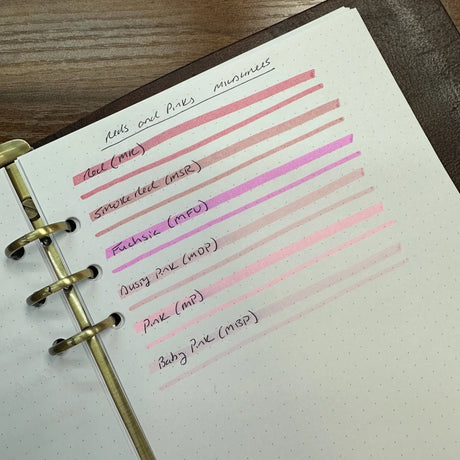 Reds and Pinks Mildliners
Red (MR)
Smoke Red (MSR)
Fuchsia (MFU)
Dusty Pink (MDP)
Pink (MP)
Baby Pink (MBP)